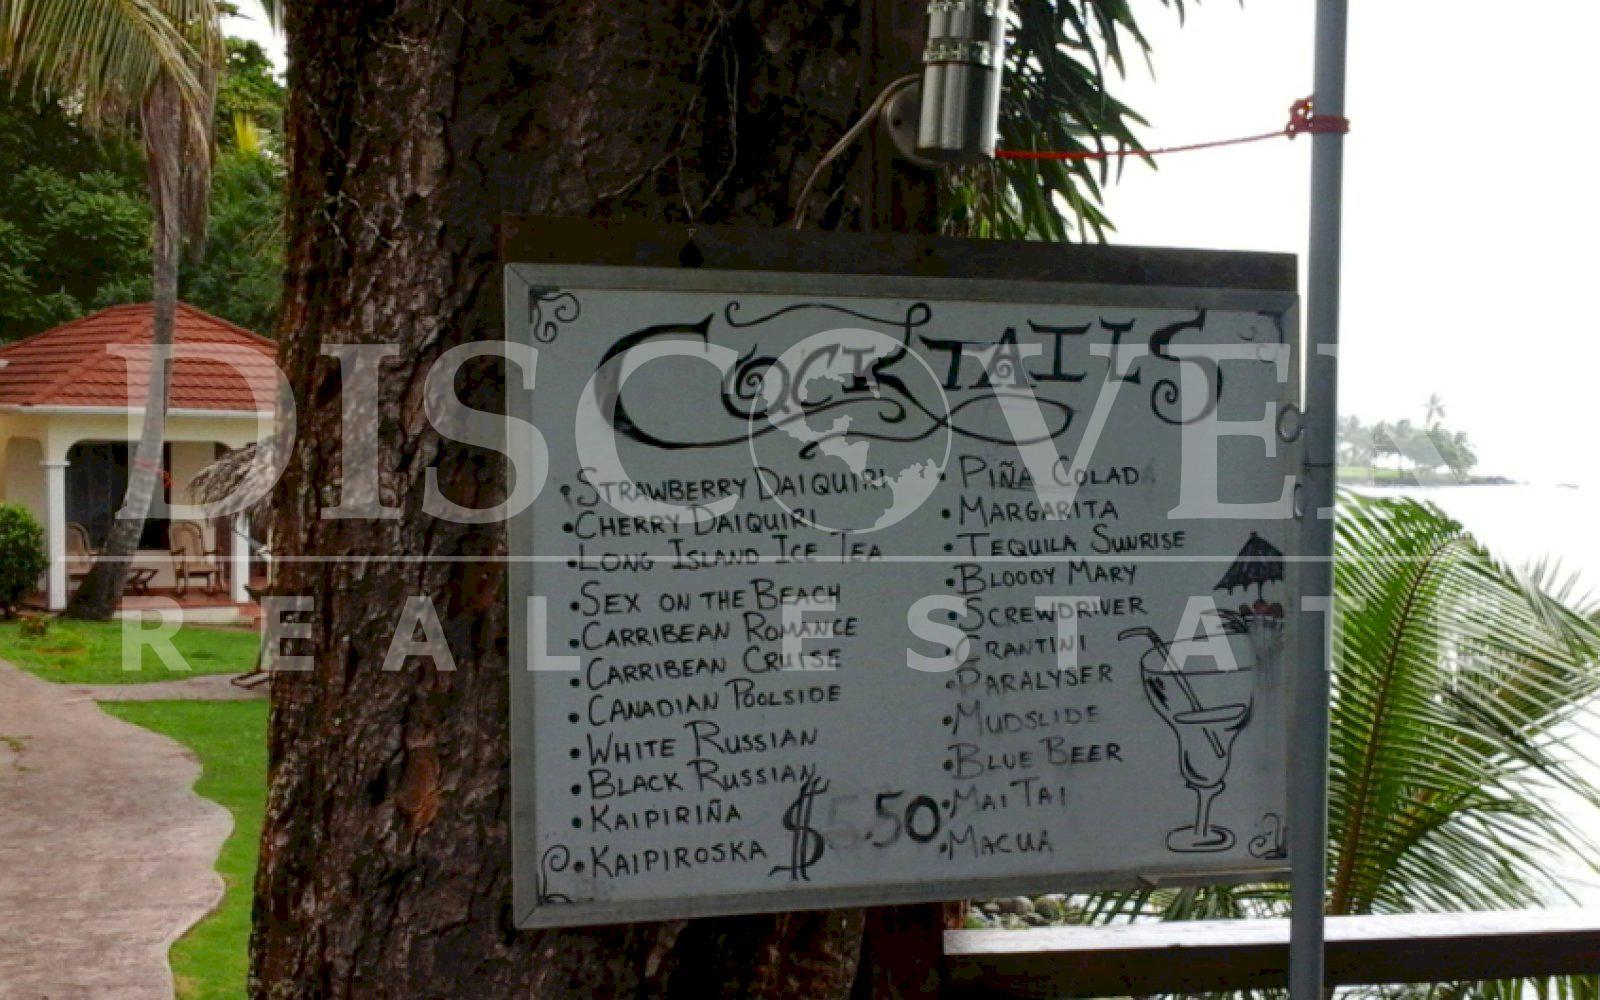 COCKTAILS
• STRAWBERRY DAIQUIRI
• CHERRY DAIQUIRI
• LONG ISLAND ICE TEA
• SEX ON THE BEACH
• CARRIBEAN ROMANCE
• CARRIBEAN CRUISE
• CANADIAN POOLSIDE
• WHITE RUSSIAN
• BLACK RUSSIAN
• KAIPIRIÑA
• KAIPIROSKA
$5.50
• PIÑA COLADA
• MARGARITA
• TEQUILA SUNRISE
• BLOODY MARY
• SCREWDRIVER
• CRANTINI
• PARALYSER
• MUDSLIDE
• BLUE BEER
• MAI TAI
• MACUA
DISCOVER
REAL ESTATE